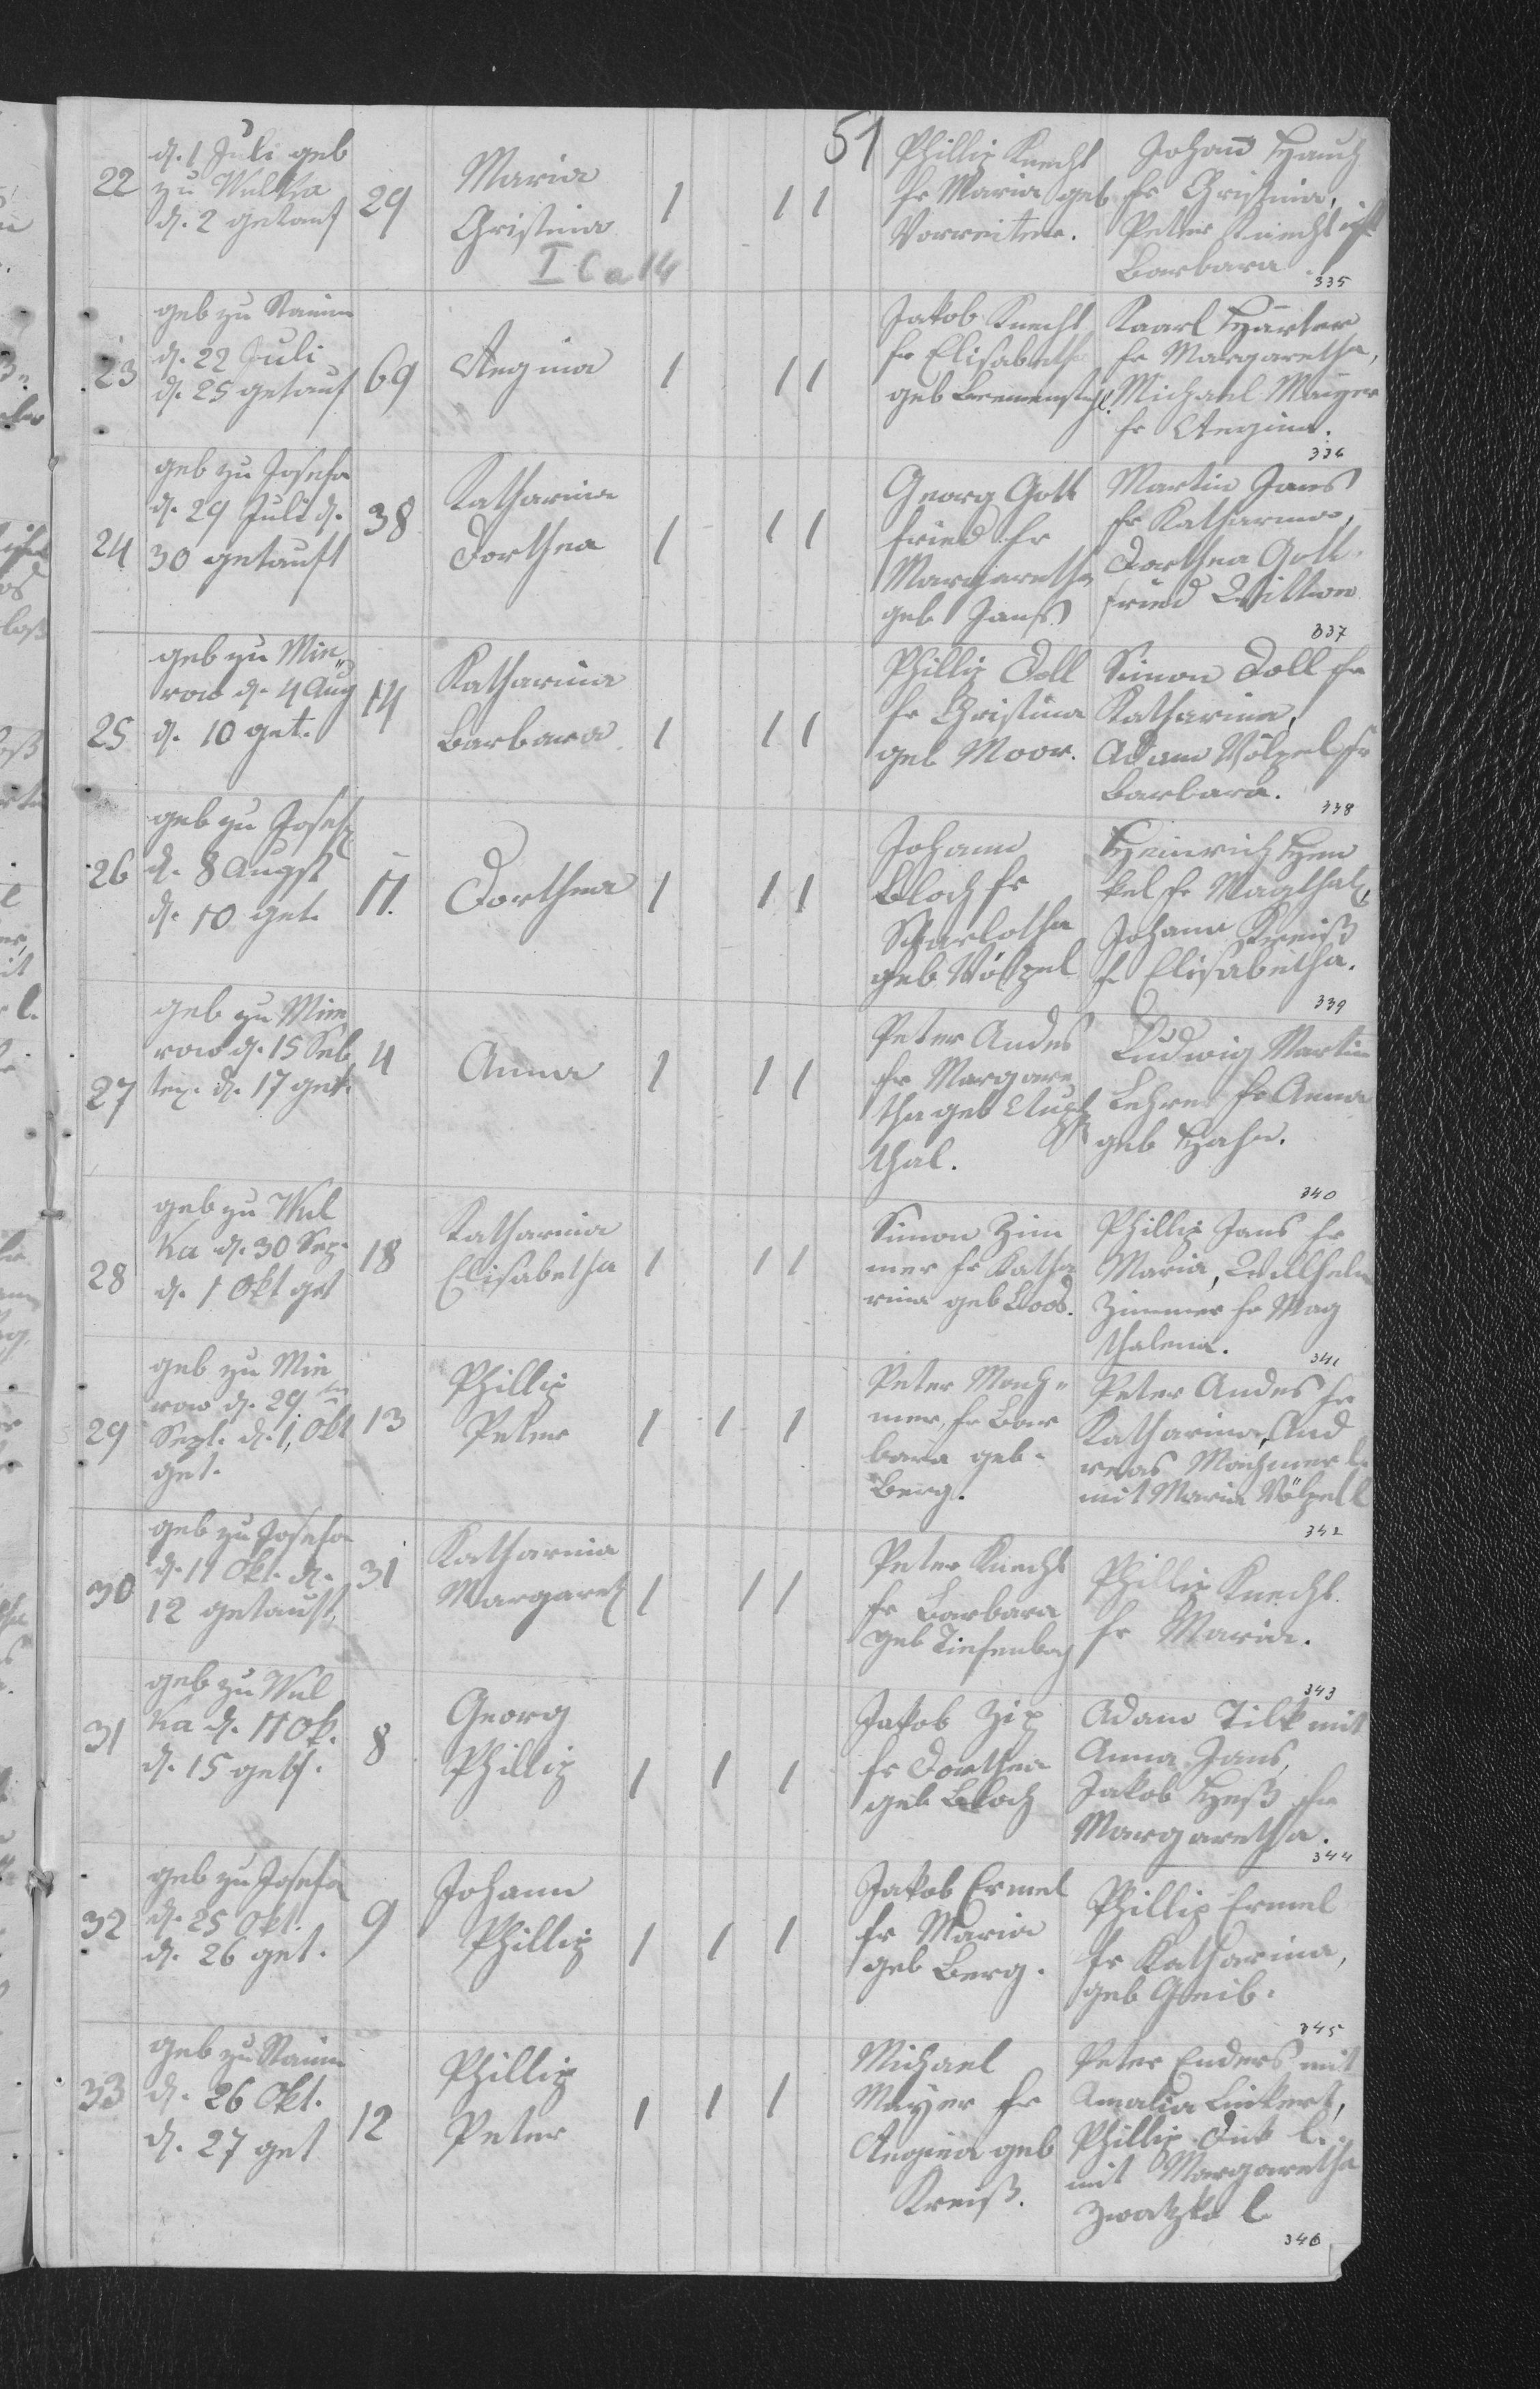 51
22
d. 1 Juli geb
zu Wulka
d. 2 getauf
29
Maria
Christina
I C a 14
Phillip Knecht
fr Maria geb
Vorreiter.
Johann Hauch
fr Christina,
Peter Knecht
Barbara
335
23
geb zu Stanin
d. 22 Juli
d. 25 getauf
69
Regina
Jakob Knecht
fr Elisabetha
geb
Kaarl Harter
fr Margaretha,
Michael Mayer
fr Regina.
336
24
geb zu Josefa
d. 29 Juli d.
30 getauft
38
Katharina
Dorthea
Georg Gott
fried fr
Margaretha
geb Jans
Martin Jans
fr Katharina,
Dorthea Gott
fried Wittwe
337
25
geb zu Mie
row d. 4 Aug
d. 10 get.
14
Katharina
Barbara
Phillip Doll
fr Christina
geb Moor.
Simon Doll fr
Katharina,
Adam Völpel fr
Barbara.
338
26
geb zu Josef
d. 8 Augst
d. 10 get.
11.
Dorthea
Johann
Bloch fr
Scharlotha
geb Völpel
Heinrich Hen
kel fr Magthal,
Johann Kreiß
fr Elisabetha.
339
27
geb zu Mie
row d. 15 Seb
tep. d. 17 get.
4
Anna
Peter Andes
fr Margare
tha geb
thal.
Ludwig Martin
Lehrer fr Anna
geb Hahn.
340
28
geb zu Wul
ka d. 30 Sep.
d. 1 Okt get
18
Katharina
Elisabetha
Simon Zim
mer fr Katha
rina geb Loos.
Phillip Jans fr
Maria, Willhelm
Zimmer fr Mag
thalena.
341
29
geb zu Mie
row d. 29ten
Sept. d. 1, Okt
get.
13
Phillip
Peter
Peter Mach-
mer, fr Bar
bara geb.
Berg.
Peter Andes fr
Katharina, And
reas Machmer l.
mit Maria Völpel l
342
30
geb zu Josefa
d. 11 Okt. d.
12 getauft,
31
Katharina
Margaret
Peter Knecht
fr Barbara
geb Tiefenbach
Phillip Knecht
fr Maria.
343
31
geb zu Wul
ka d. 11 Ok.
d. 15 get.
8
Georg
Phillip
Jakob Zip
fr Dorthea
geb Bloch
Adam Tilk mit
Anna Jans,
Jakob Heß fr
Margaretha.
344
32
geb zu Josefa
d. 25 Okt.
d. 26 get.
9
Johann
Phillip
Jakob Ermel
fr Maria
geb Berg.
Phillip Ermel
fr Katharina,
geb Greib.
345
33
geb zu Stanin
d. 26 Okt.
d. 27 get
12
Phillip
Peter
Michael
Mayer fr
Regina geb
Kreiß.
Peter Enders mit
Amalia Linkert,
Phillip Dick l.
mit Margaretha
Zwatzke l.
346